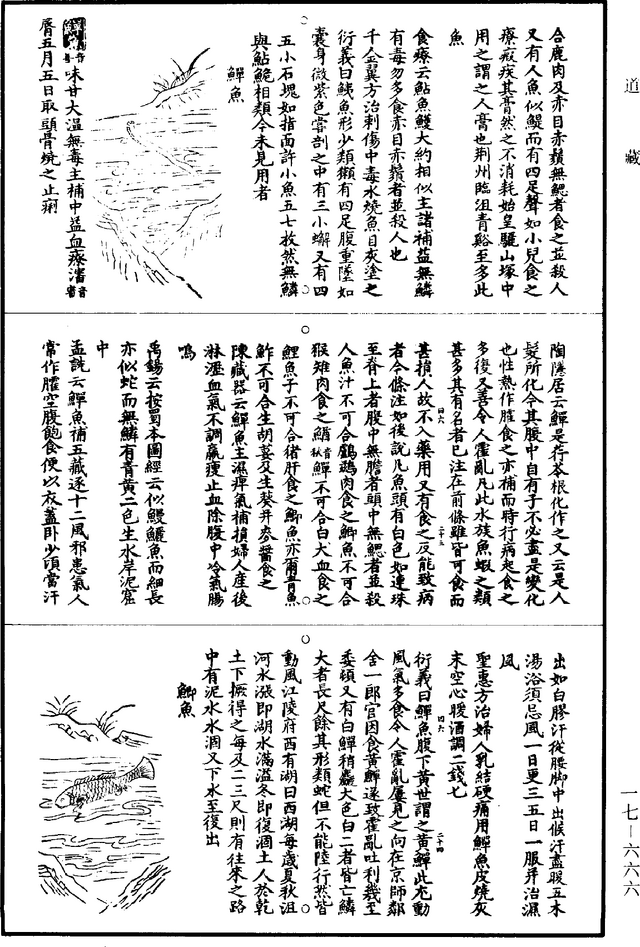 合鹿肉及赤目赤鬚無鰓者食之並殺人
又有人魚似鯷而有四足聲如小兒食之
療瘕疾其膏然之不消耗始皇驪山塚中
用之謂之人膏也荆州臨沮青谿至多此
魚
食療云鮎魚鱯大約相似主諸補益無鱗
有毒勿多食赤目赤鬚者並殺人也
千金翼方治刺傷中毒水燒魚目灰塗之
衍義曰鮧魚形少類獺有四足腹重墜如
囊身微紫色嘗剖之中有三小蠏又有四
五小石塊如指面許小魚五七枚然無鱗
與鮎鮠相類今未見用者
鱓魚
味甘大温無毒主補中益血療瀋音審
脣五月五日取頭骨燒之止痢
陶隱居云鱓是荇苓根化作之又云是人
髮所化今其腹中自有子不必盡是變化
也性熱作臛食之亦補而時行病起食之
多復又善令人霍亂凡此水族魚蝦之類
甚多其有名者已注在前條雖皆可食而
甚損人故不入藥用又有食之反能致病
者今條注如後說凡魚頭有白色如連珠
至脊上者腹中無膽者頭中無鰓者並殺
人魚汁不可合鸕鷀肉食之鯽魚不可合
猴雉肉食之鰌音秋鱓不可合白犬血食之
鯉魚子不可合猪肝食之鯽魚亦爾青魚
鮓不可合生胡荽及生葵并麥醬食之
陳藏器云鱓魚主濕痺氣補損婦人産後
淋瀝血氣不調羸瘦止血除腹中冷氣腸
鳴
禹錫云按蜀本圖經云似鰻鱺魚而細長
亦似蛇而無鱗有青黄二色生水岸泥窟
中
孟詵云鱓魚補五藏逐十二風邪患氣人
常作臛空腹飽食便以衣蓋卧少頃當汗
出如白膠汗從腰脚中出候汗盡暖五木
湯浴須忌風一日更三五日一服并治濕
風
聖惠方治婦人乳結硬痛用鱓魚皮燒灰
末空心暖酒調二錢匕
衍義曰鱓魚腹下黄世謂之黄鱓此尤動
風氣多食令人霍亂屢見之向在京師鄰
舍一郎官因食黄鱓遂致霍亂吐利幾至
委頓又有白鱓稍麤大色白二者皆亡鱗
大者長尺餘其形類蛇但不能陸行然皆
動風江陵府西有湖曰西湖每歲夏秋沮
河水漲即湖水滿溢冬即復涸土人於乾
土下撅得之每及二三尺則有往來之路
中有泥水水涸又下水至復出
鯽魚
道藏
一七—六六六